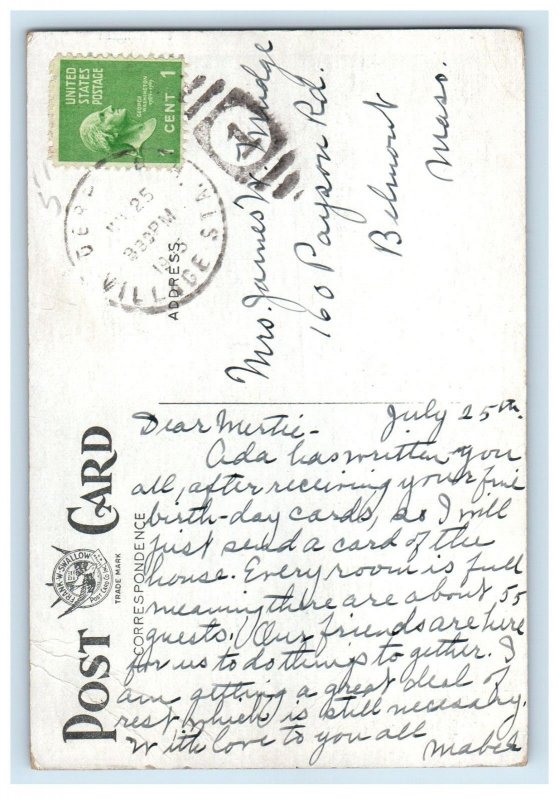 UNITED
STATES
POSTAGE
GEORGE
WASHINGTON
1 CENT 1
25
PM
VILLAGE STA.
1
ADDRESS
Mrs. James W.
160 Payson Rd.
Belmont
Mass.
POST CARD
FRANK W. SWALLOW
POST CARD CO.
TRADE MARK
CORRESPONDENCE
July 25th.
Dear Mertie-
Ada has written you
all, after receiving your fine
birth-day cards, so I will
just send a card of the
house. Every room is full
meaning there are about 55
guests. Our friends are here
for us to do things to gether. I
am getting a great deal of
rest which is still necessary.
With love to you all
Mabel